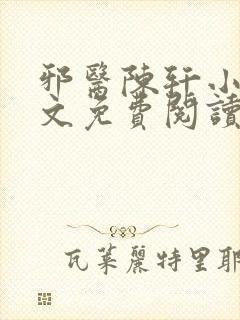 邪醫陳軒小
文免費閱讀
瓦萊麗特里耶